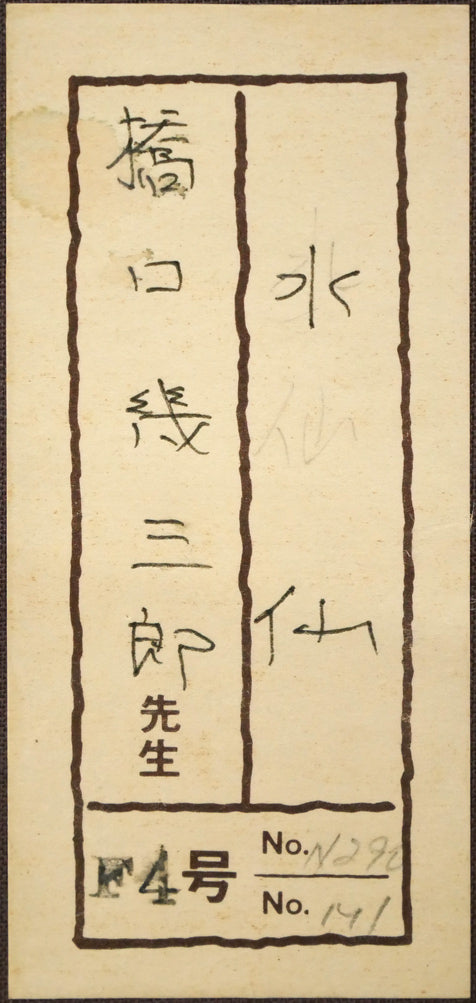 水仙
橋口幾三郎先生
F4号
No. N292
No. 141